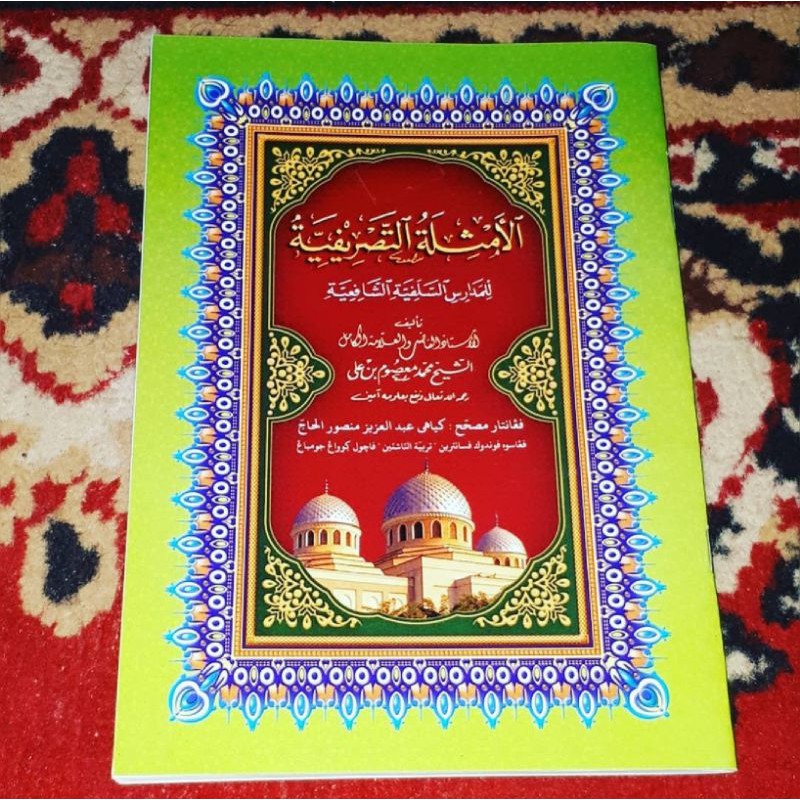 الأَمْثِلَةُ التَّصْرِيْفِيَّةُ
لِلْمَدَارِسِ السَّلَفِيَّةِ الشَّافِعِيَّةِ
تأليف
الأستاذ الفاضل والعلامة الكامل
الشيخ محمد معصوم بن علي
رحمه الله تعالى ونفع بعلومه آمين
فغانتار مصحح : كياهى عبد العزيز منصور الحاج
فڠاسوه فوندوك فسانترين "تربية الناشئين" فاچول كوواڠ جومباڠ